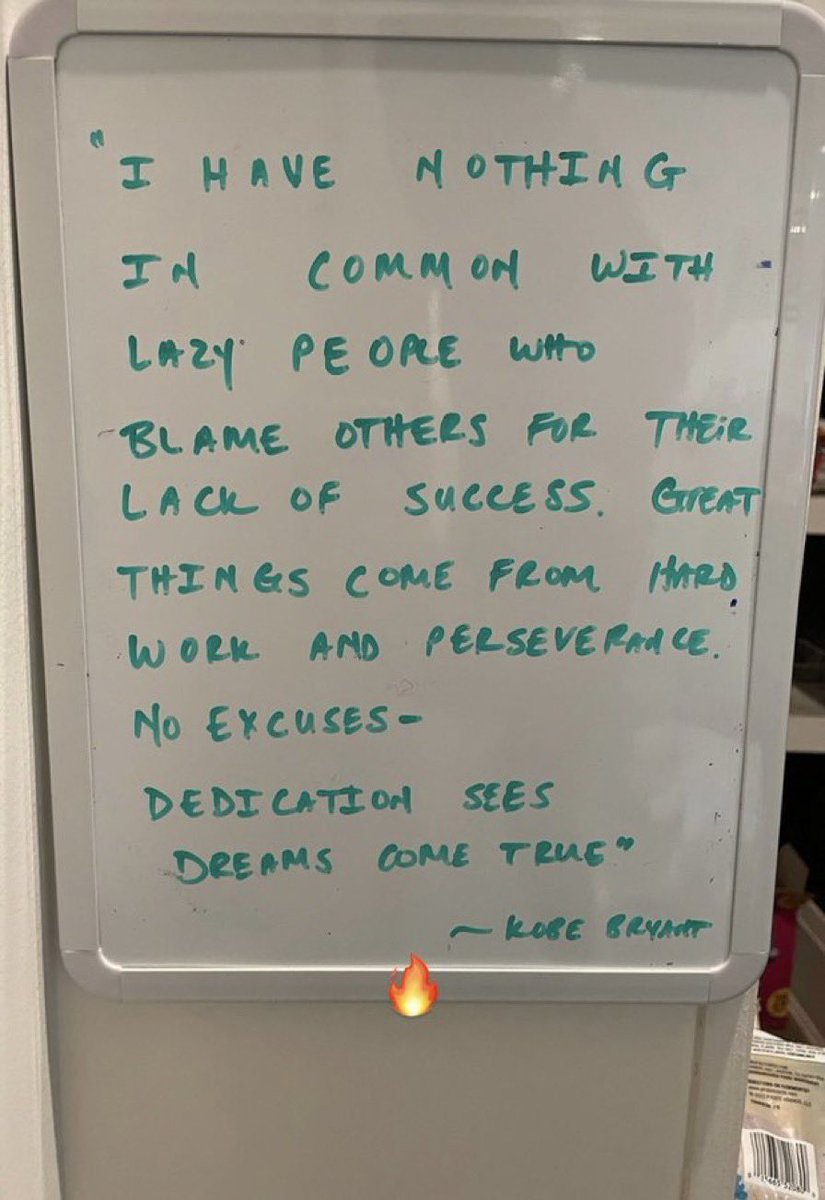 "I HAVE NOTHING
IN COMMON WITH
LAZY PEOPLE WHO
BLAME OTHERS FOR THEiR
LACK OF SUCCESS. GREAT
THINGS COME FROM HARD
WORK AND PERSEVERANCE.
NO EXCUSES-
DEDICATION SEES
DREAMS COME TRUE"
~ KOBE BRYANT